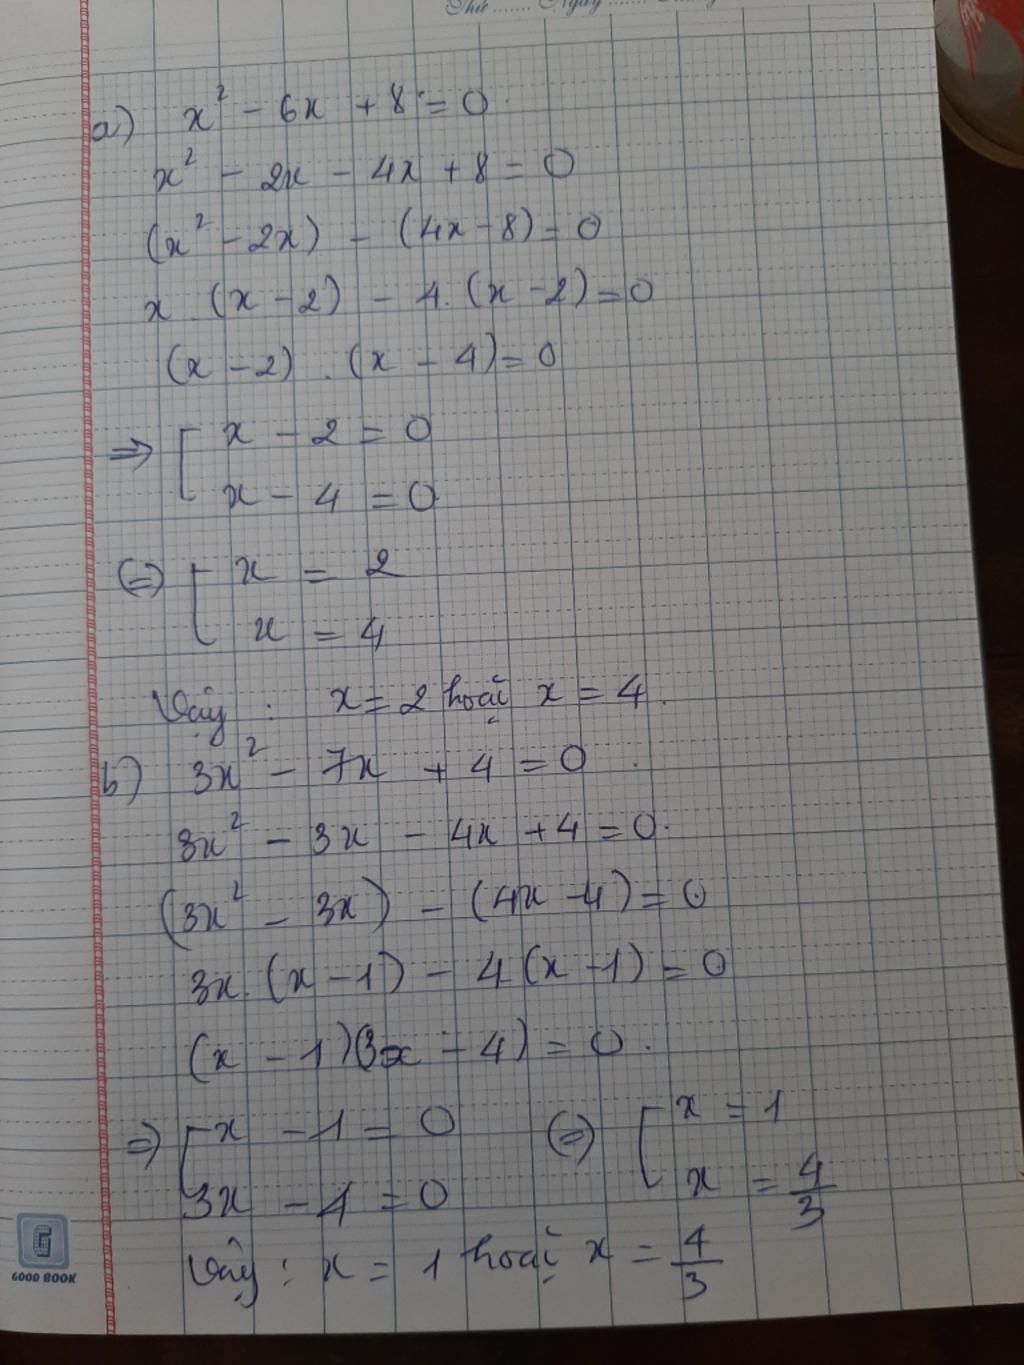 Thứ ....... Ngày .......
a) x² - 6x + 8 = 0
x² - 2x - 4x + 8 = 0
(x² - 2x) - (4x - 8) = 0
x . (x - 2) - 4 . (x - 2) = 0
(x - 2) . (x - 4) = 0
⇒ [ x - 2 = 0
x - 4 = 0
(=) [ x = 2
x = 4
Vậy : x = 2 hoặc x = 4.
b) 3x² - 7x + 4 = 0
3x² - 3x - 4x + 4 = 0.
(3x² - 3x) - (4x - 4) = 0
3x . (x - 1) - 4 (x - 1) = 0
(x - 1)(3x - 4) = 0.
⇒ [ x - 1 = 0 (=) [ x = 1
3x - 4 = 0 x = 4/3
Vậy : x = 1 hoặc x = 4/3
G
GOOD BOOK